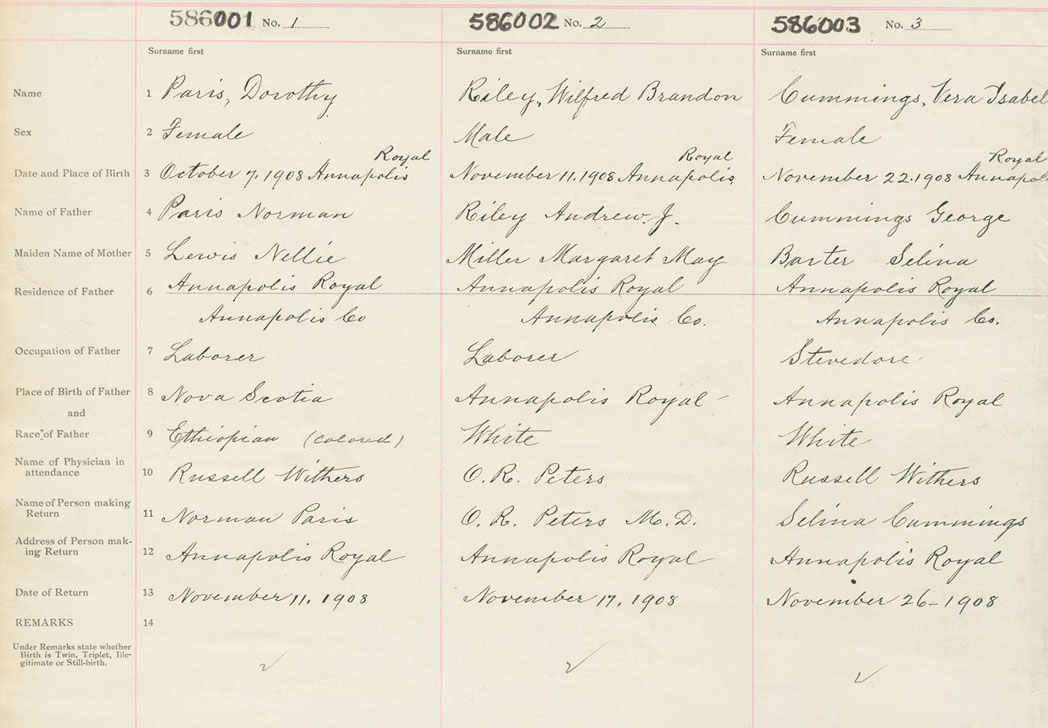 586001 No. 1 586002 No. 2 586003 No. 3
Surname first Surname first Surname first
Name 1 Paris, Dorothy Riley, Wilfred Brandon Cummings, Vera Isabel
Sex 2 Female Male Female
Royal Royal Royal
Date and Place of Birth 3 October 7, 1908 Annapolis November 11, 1908 Annapolis November 22, 1908 Annapol
Name of Father 4 Paris Norman Riley Andrew J. Cummings George
Maiden Name of Mother 5 Lewis Nellie Miller Margaret May Barter Selina
Residence of Father 6 Annapolis Royal Annapolis Royal Annapolis Royal
Annapolis Co Annapolis Co. Annapolis Co.
Occupation of Father 7 Laborer Laborer Stevedore
Place of Birth of Father 8 Nova Scotia Annapolis Royal Annapolis Royal
and
Race of Father 9 Ethiopian (Colored) White White
Name of Physician in
attendance 10 Russell Withers O. R. Peters Russell Withers
Name of Person making
Return 11 Norman Paris O. R. Peters M.D. Selina Cummings
Address of Person mak-
ing Return 12 Annapolis Royal Annapolis Royal Annapolis Royal
Date of Return 13 November 11, 1908 November 17, 1908 November 26-1908
REMARKS 14
Under Remarks state whether
Birth is Twin, Triplet, Ille-
gitimate or Still-birth.